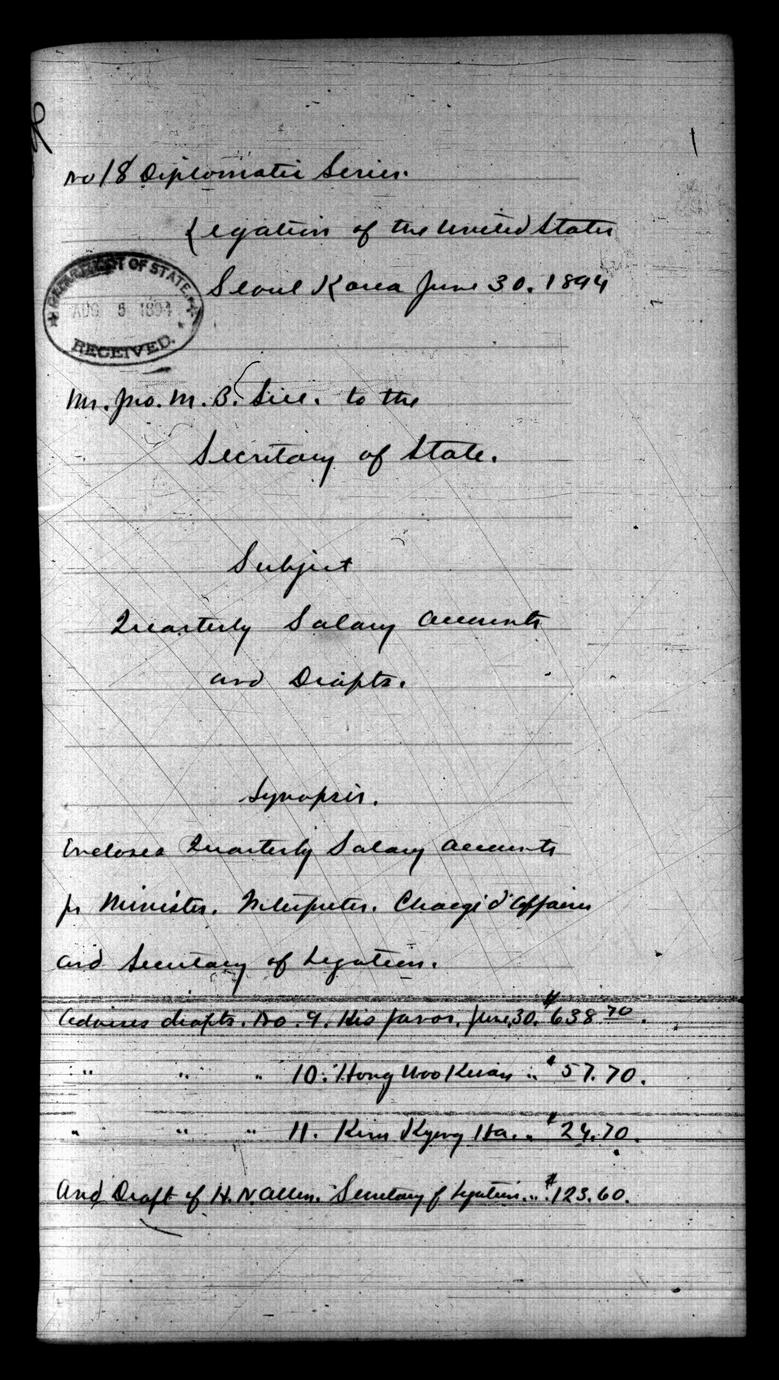 No 18 Diplomatic Series.
Legation of the United States
Seoul Korea June 30. 1894
DEPARTMENT OF STATE.
AUG 5 1894
RECEIVED.
Mr. Jno. M. B. Sill. to the
Secretary of State.
Subject
Quarterly Salary Accounts
and Drafts.
Synopsis.
Encloses Quarterly Salary Accounts
for Minister. Interpreter. Charge d'Affaires
and Secretary of Legation.
Advises drafts. No. 9. His favor. June, 30. $638.70.
" " " 10. Hong Woo Kuan " $57.70.
" " " 11. Kim Kyeng Ha. " $24.70.
And Draft of H. N Allen. Secretary of Legation. " $123.60.